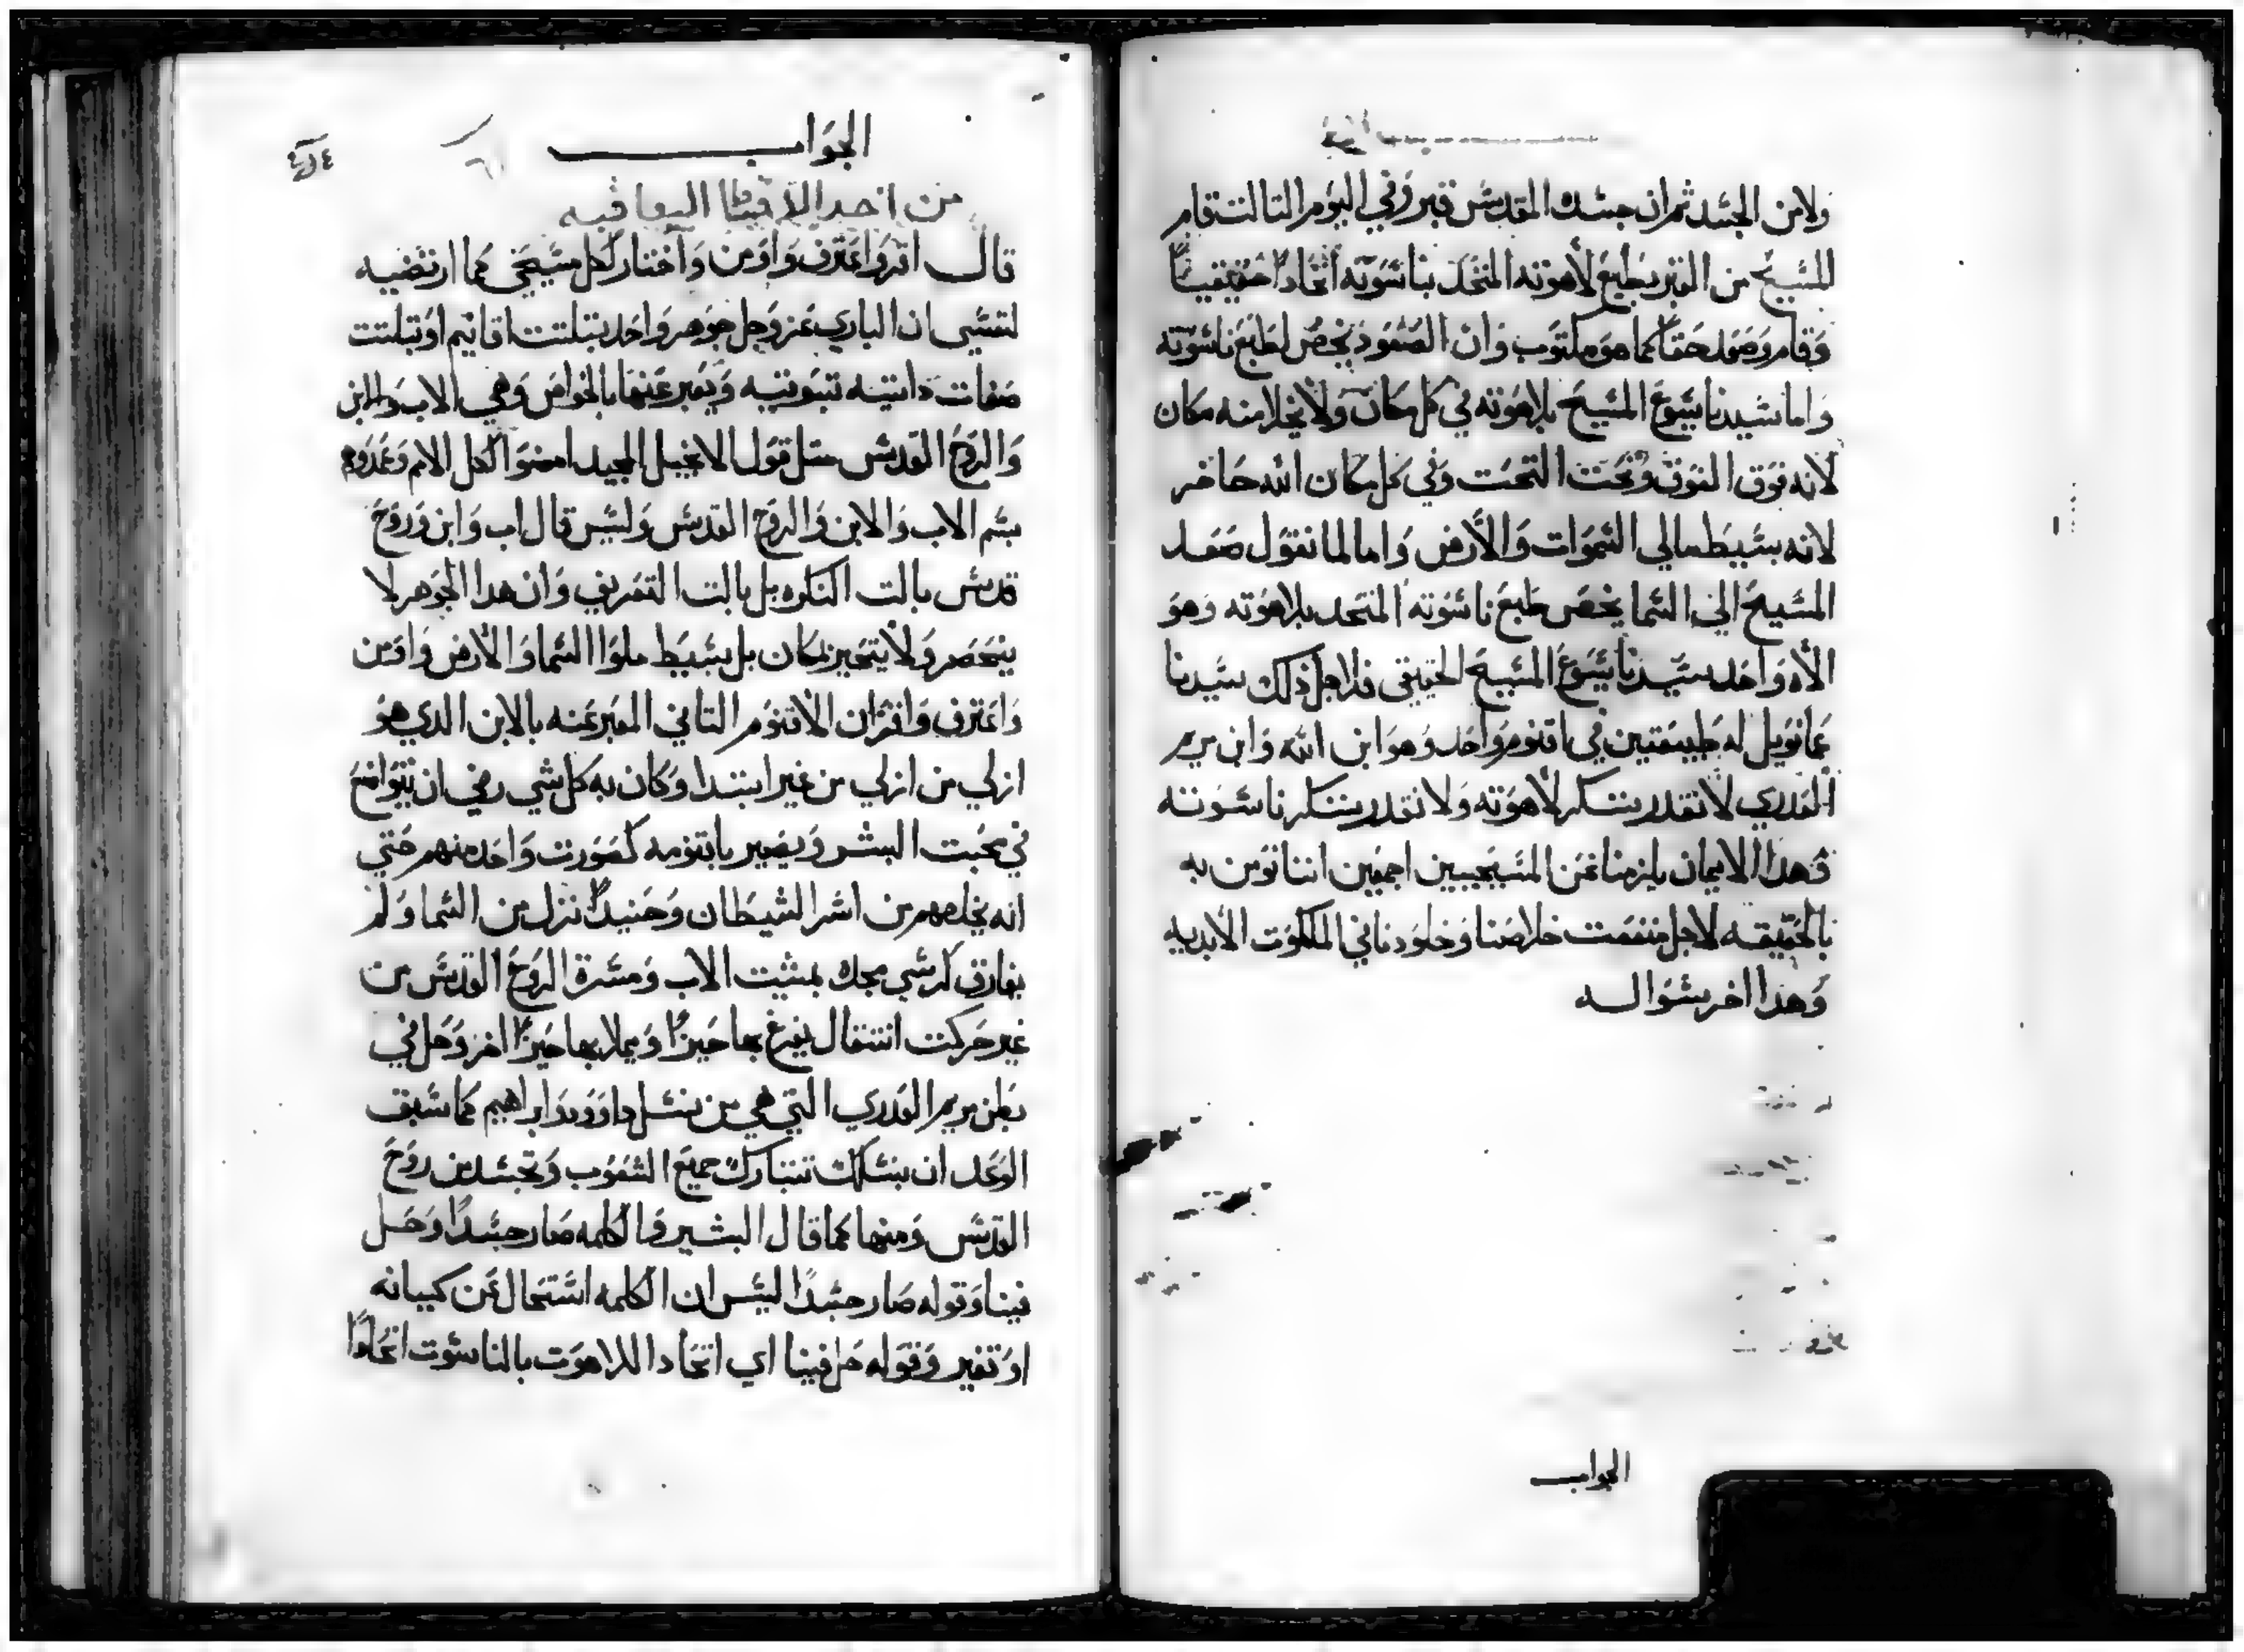 ولا من الجسد ثم ان جسده المقدس قبر وفي اليوم التالت قام
المسيح من القبر بطبع لاهوته المتحد بناسوته اتحادًا حقيقيًا
وقام وصعد حقًا كما هو مكتوب وان الصعود يخص لطبع ناسوته
واما سيدنا يسوع المسيح بلاهوته في كل مكان ولا يخلا منه مكان
لانه فوق الفوق وتحت التحت وفي كل مكان الله حاضر
لانه بسيط مالي السموات والأرض واما لما نقول صعد
المسيح الي السما يخص طبع ناسوته المتحد بلاهوته وهو
الأه واحد سيدنا يسوع المسيح الحقيقي فلاجل ذلك سيدنا
عمانويل له طبيعتين في اقنوم واحد وهو ابن الله وابن مريم
العدري لا نقدر ننكر لاهوته ولا نقدر ننكر ناسوته
فهدا الايمان يلزمنا نحن المسيحيين اجمعين اننا نومن به
بالحقيقه لاجل منفعت خلاصنا وخلودنا في الملكوت الابديه
وهدا اخر سواله
الجواب
الجواب
من احد الاقباط اليعاقبه
قال اقر واعترف واومن واختار لكل مسيحي كما ارتضيه
لنفسي ان الباري عز وجل جوهر واحد بتلتت اقانيم او بتلتت
صفات داتيه تبوتيه ويعبر عنها بالخواص وهي الاب والابن
والروح القدس متل قول الانجيل المجيد امضوا لكل الامم وعمدوهم
بسم الاب والابن والروح القدس وليس قال اب وابن وروح
قدس بالت النكره بل بالت التعريف وان هدا الجوهر لا
ينحصر ولا يتحيز بمكان بل بسيط ملوا السما والارض واومن
واعترف واقر ان الاقنوم التاني المعبر عنه بالابن الدي هو
ازلي من ازلي من غير ابتدا وكان به كل شي رضي ان يتواضع
في محبت البشر ويصير باقنومه كصورت واحد منهم حتي
انه يخلصهم من اسر الشيطان وحنيدًا نزل من السما ولم
يفارق كرسي مجده بمشيت الاب ومسرة الروح القدس من
غير حركت انتقال يفرغ بها حيزًا ويملا بها حيزًا اخر وحل في
بطن مريم العدري التي هي من نسل داوود وابراهيم كما سبق
الوعد ان بنسلك تتبارك جميع الشعوب وتجسد من روح
القدس ومنها كما قال البشير والكلمه صار جسدًا وحل
فينا وقوله صار جسدًا ليس ان الكلمه استحال عن كيانه
او تغير وقوله حل فينا اي اتحاد اللاهوت بالناسوت اتحادًا